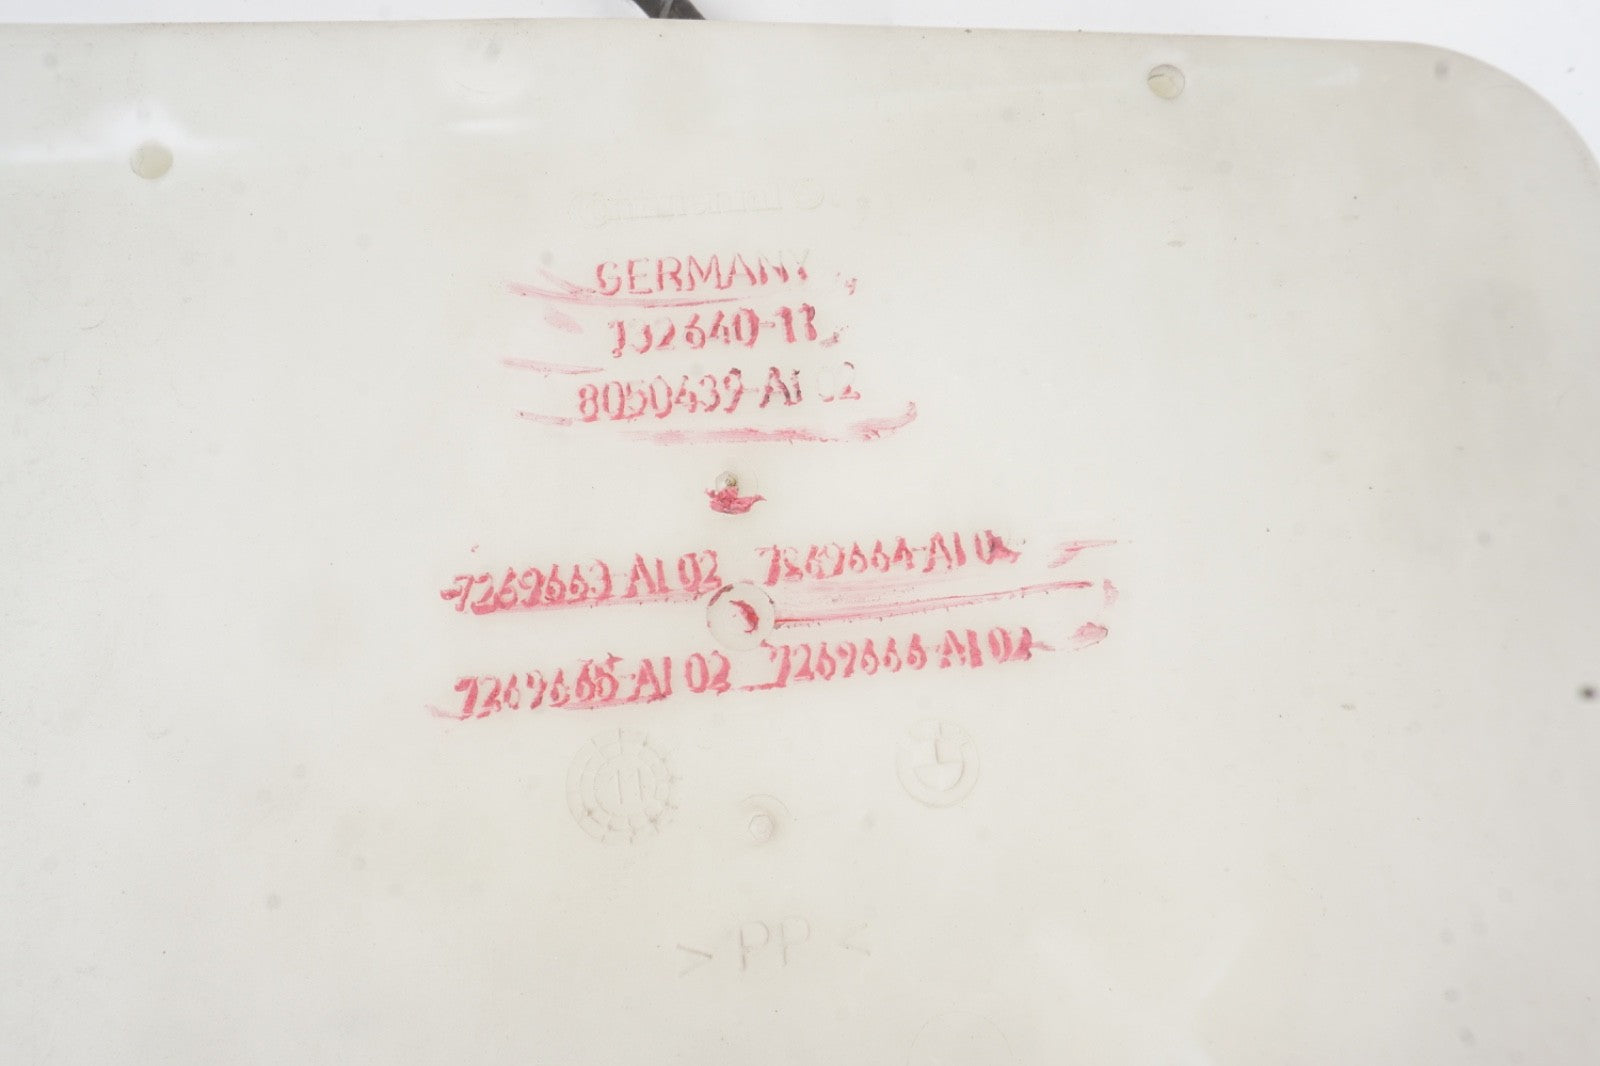 GERMANY
132640-11
8050439-AI 02
7269663-AI 02 7269664-AI 02
7269665-AI 02 7269666-AI 02
11
>PP<